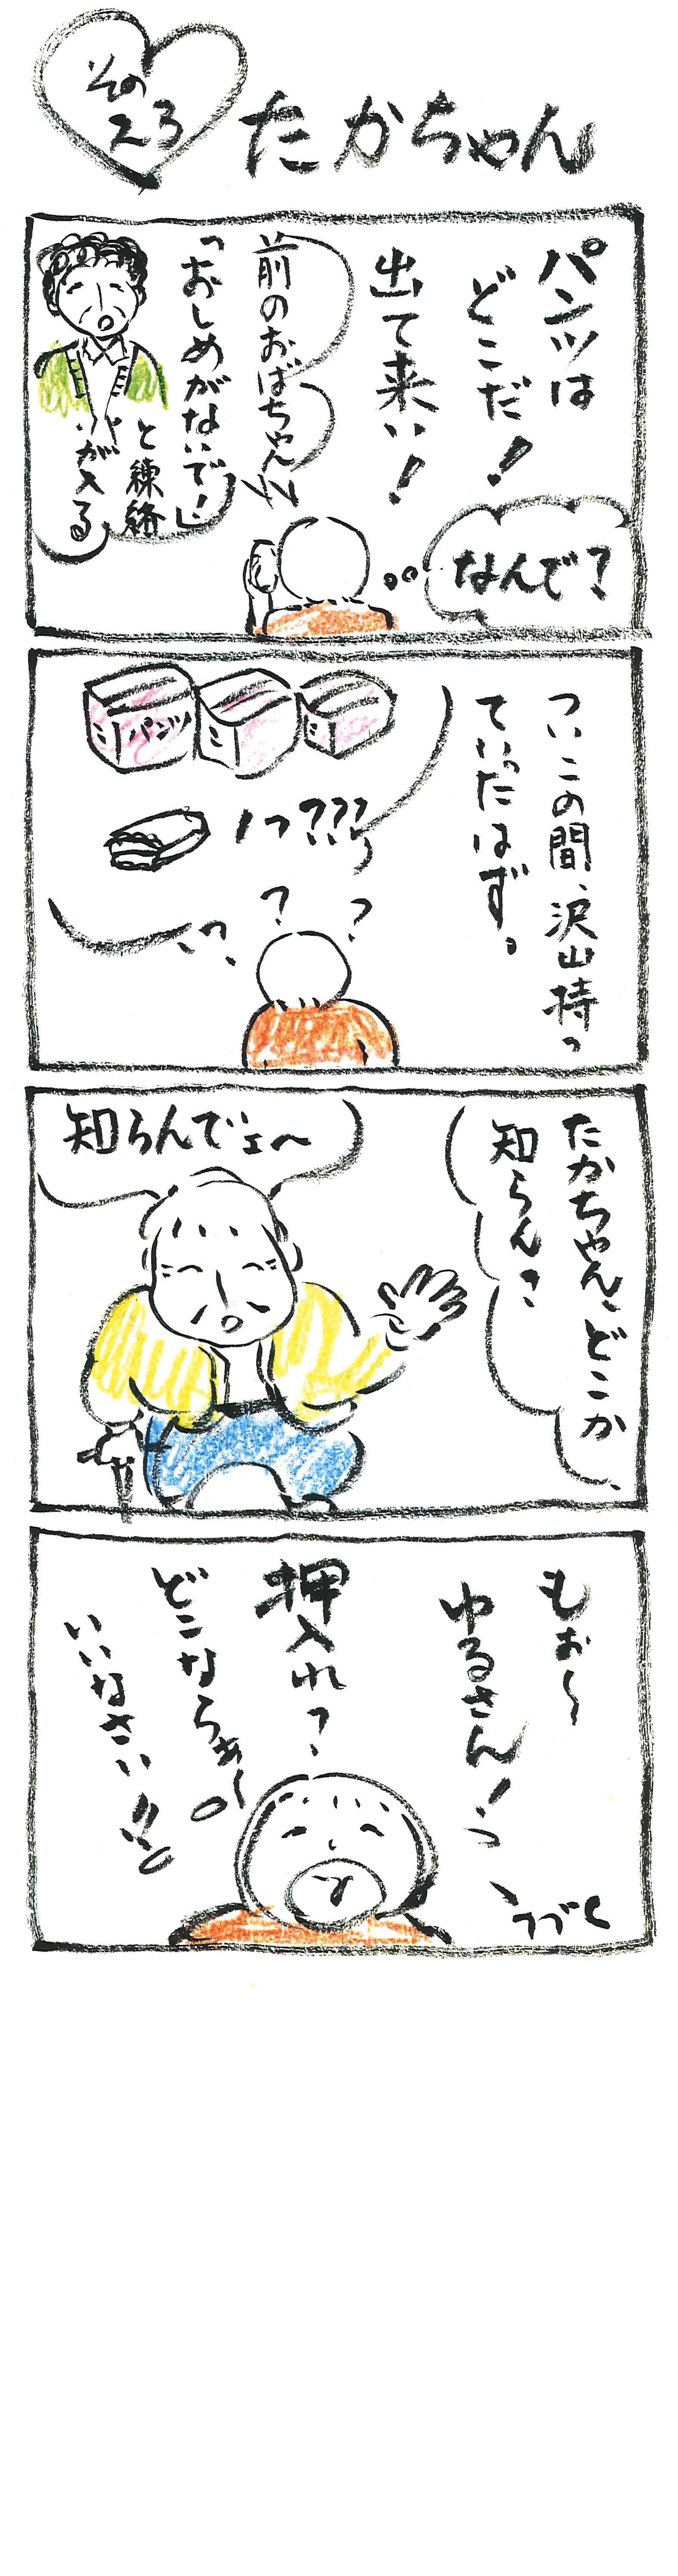 その
23
たかちゃん
パンツは
どこだ!
出て来い!
前のおばちゃん
「おしめがないで!」
と練絡
が入る
なんで?
つい この間、沢山持っ
ていったはず。
ミパンツ
ミ
ミ
1つ???
?
?
たかちゃん、どこか
知らん?
知らんでェ〜
もぉ〜
ゆるさん!
押入れ?
どこならぁ〜
いいなさい!!
つづく